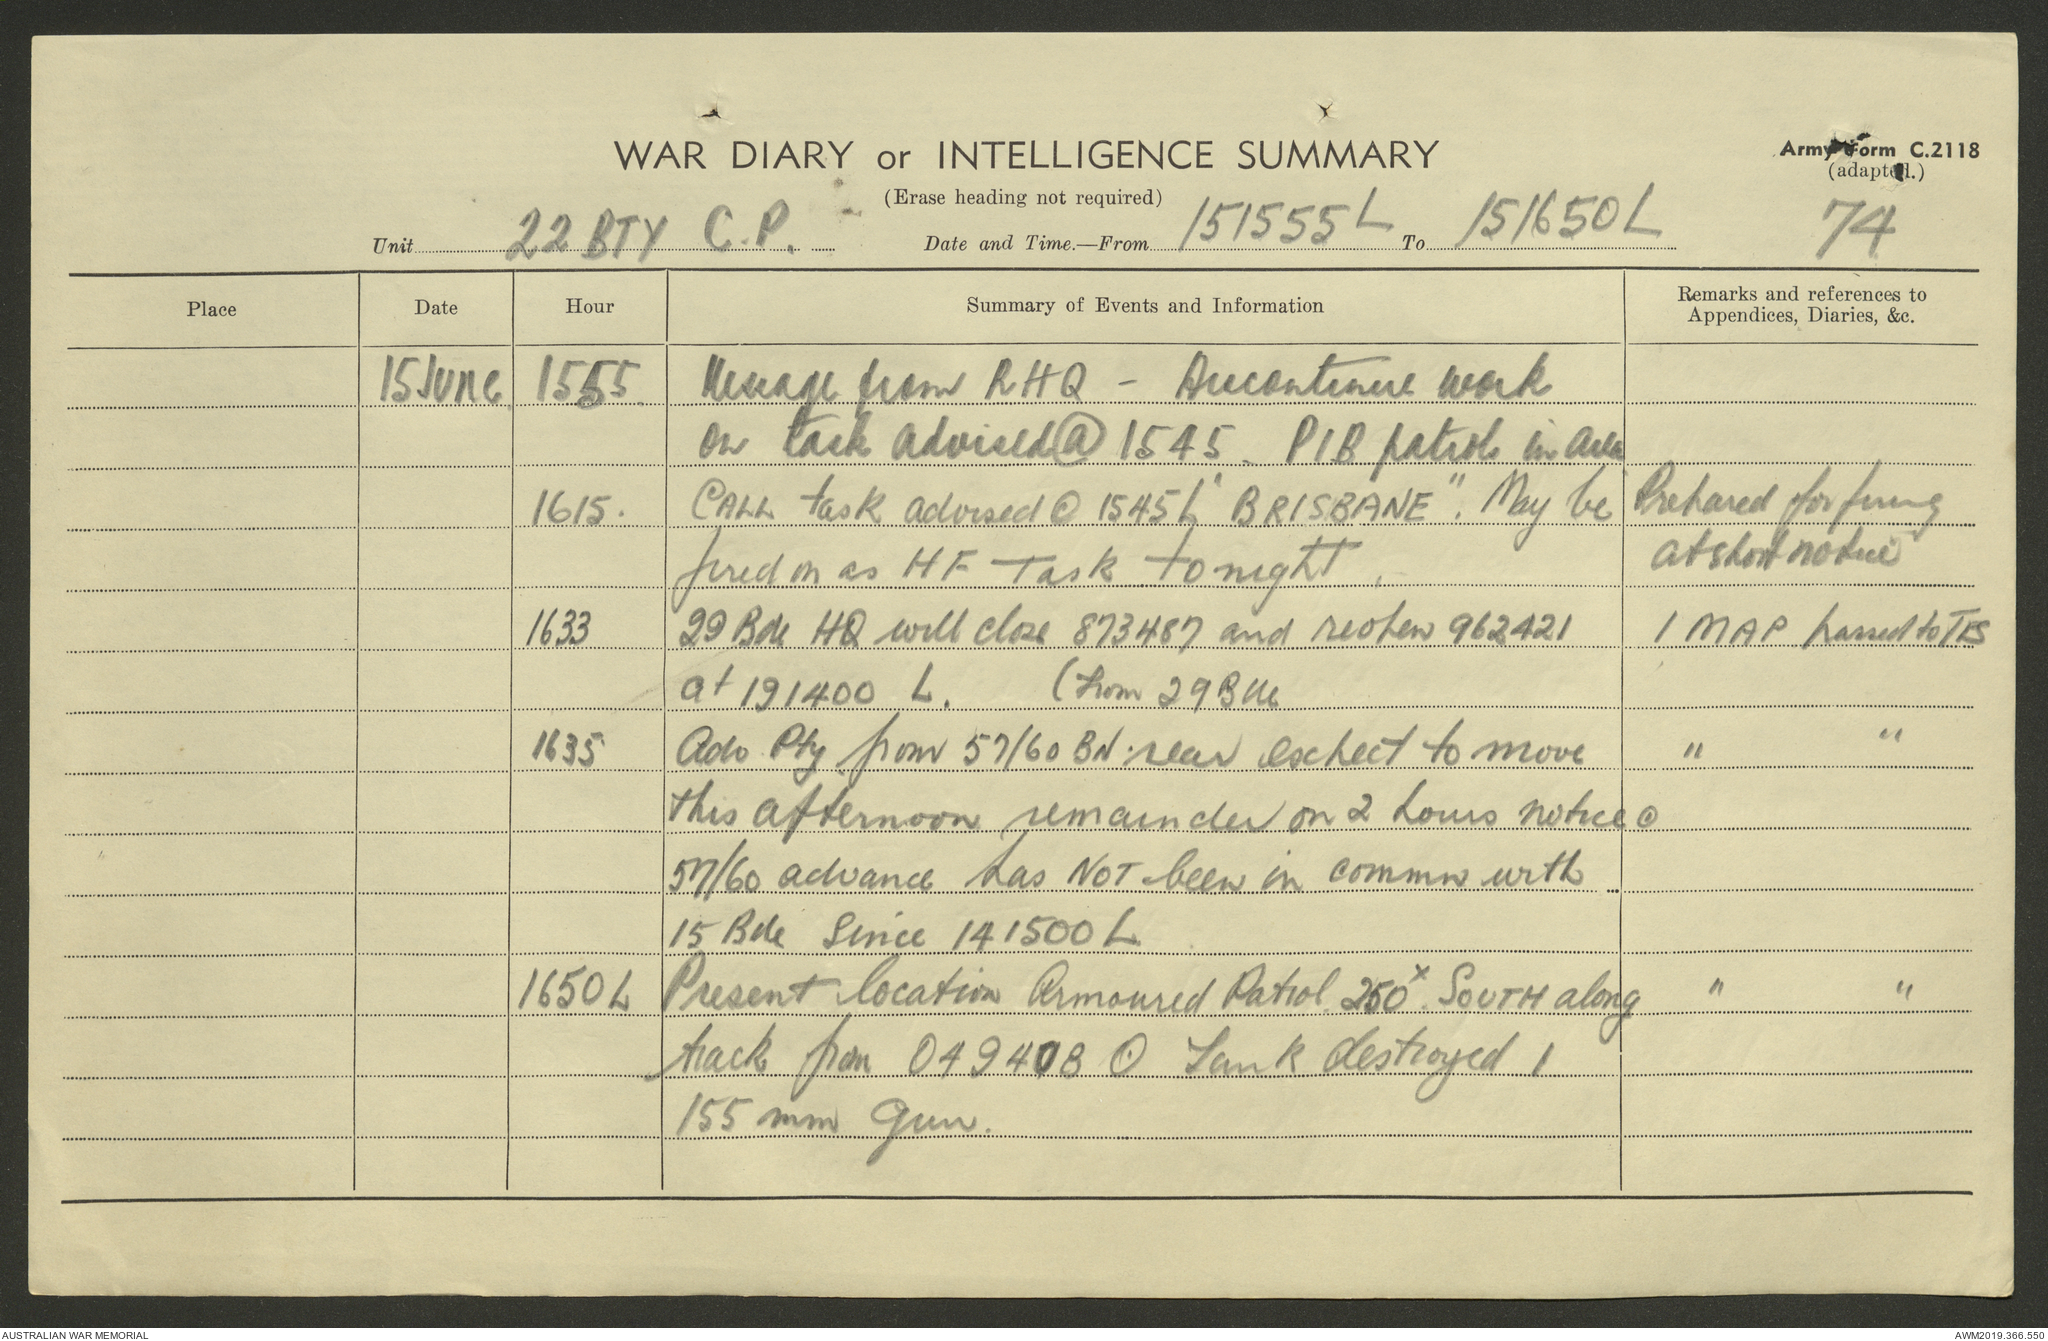 WAR DIARY or INTELLIGENCE SUMMARY
Army Form C.2118
(Erase heading not required)
(adapted.)
Unit 22 BTY C.P. Date and Time.—From 151555L To 151650L 74
Place Date Hour Summary of Events and Information Remarks and references to Appendices, Diaries, &c.
15 June 1555 Message from RHQ - Discontinue work
on task advised @ 1545. PIB patrols in area
1615. CALL task advised @ 1545L "BRISBANE". May be Prepared for firing
fired on as HF Task tonight. at short notice
1633 29 Bde HQ will close 873487 and reopen 962421 1 MAP passed to TPS
at 191400 L. (From 29 Bde
1635 Adv Pty from 57/60 BN rear expect to move " "
this afternoon remainder on 2 hours notice @
57/60 advance has NOT been in commn with
15 Bde Since 141500L
1650L Present location Armoured Patrol 250x SOUTH along " "
track from 049408 O Tank destroyed 1
155 mm Gun.
AUSTRALIAN WAR MEMORIAL
AWM2019.366.550